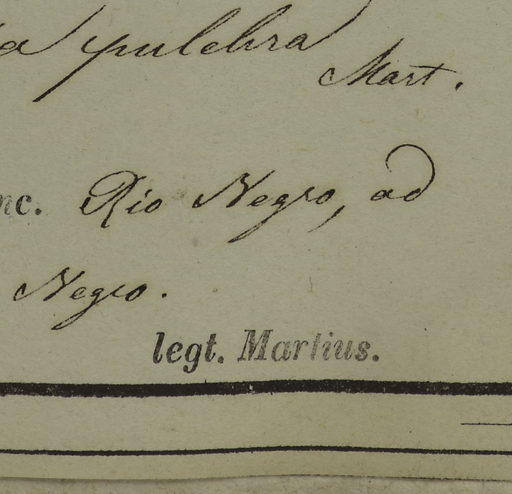 a pulchra
Mart.
nc. Rio Negro, ad
Negro.
legt. Martius.